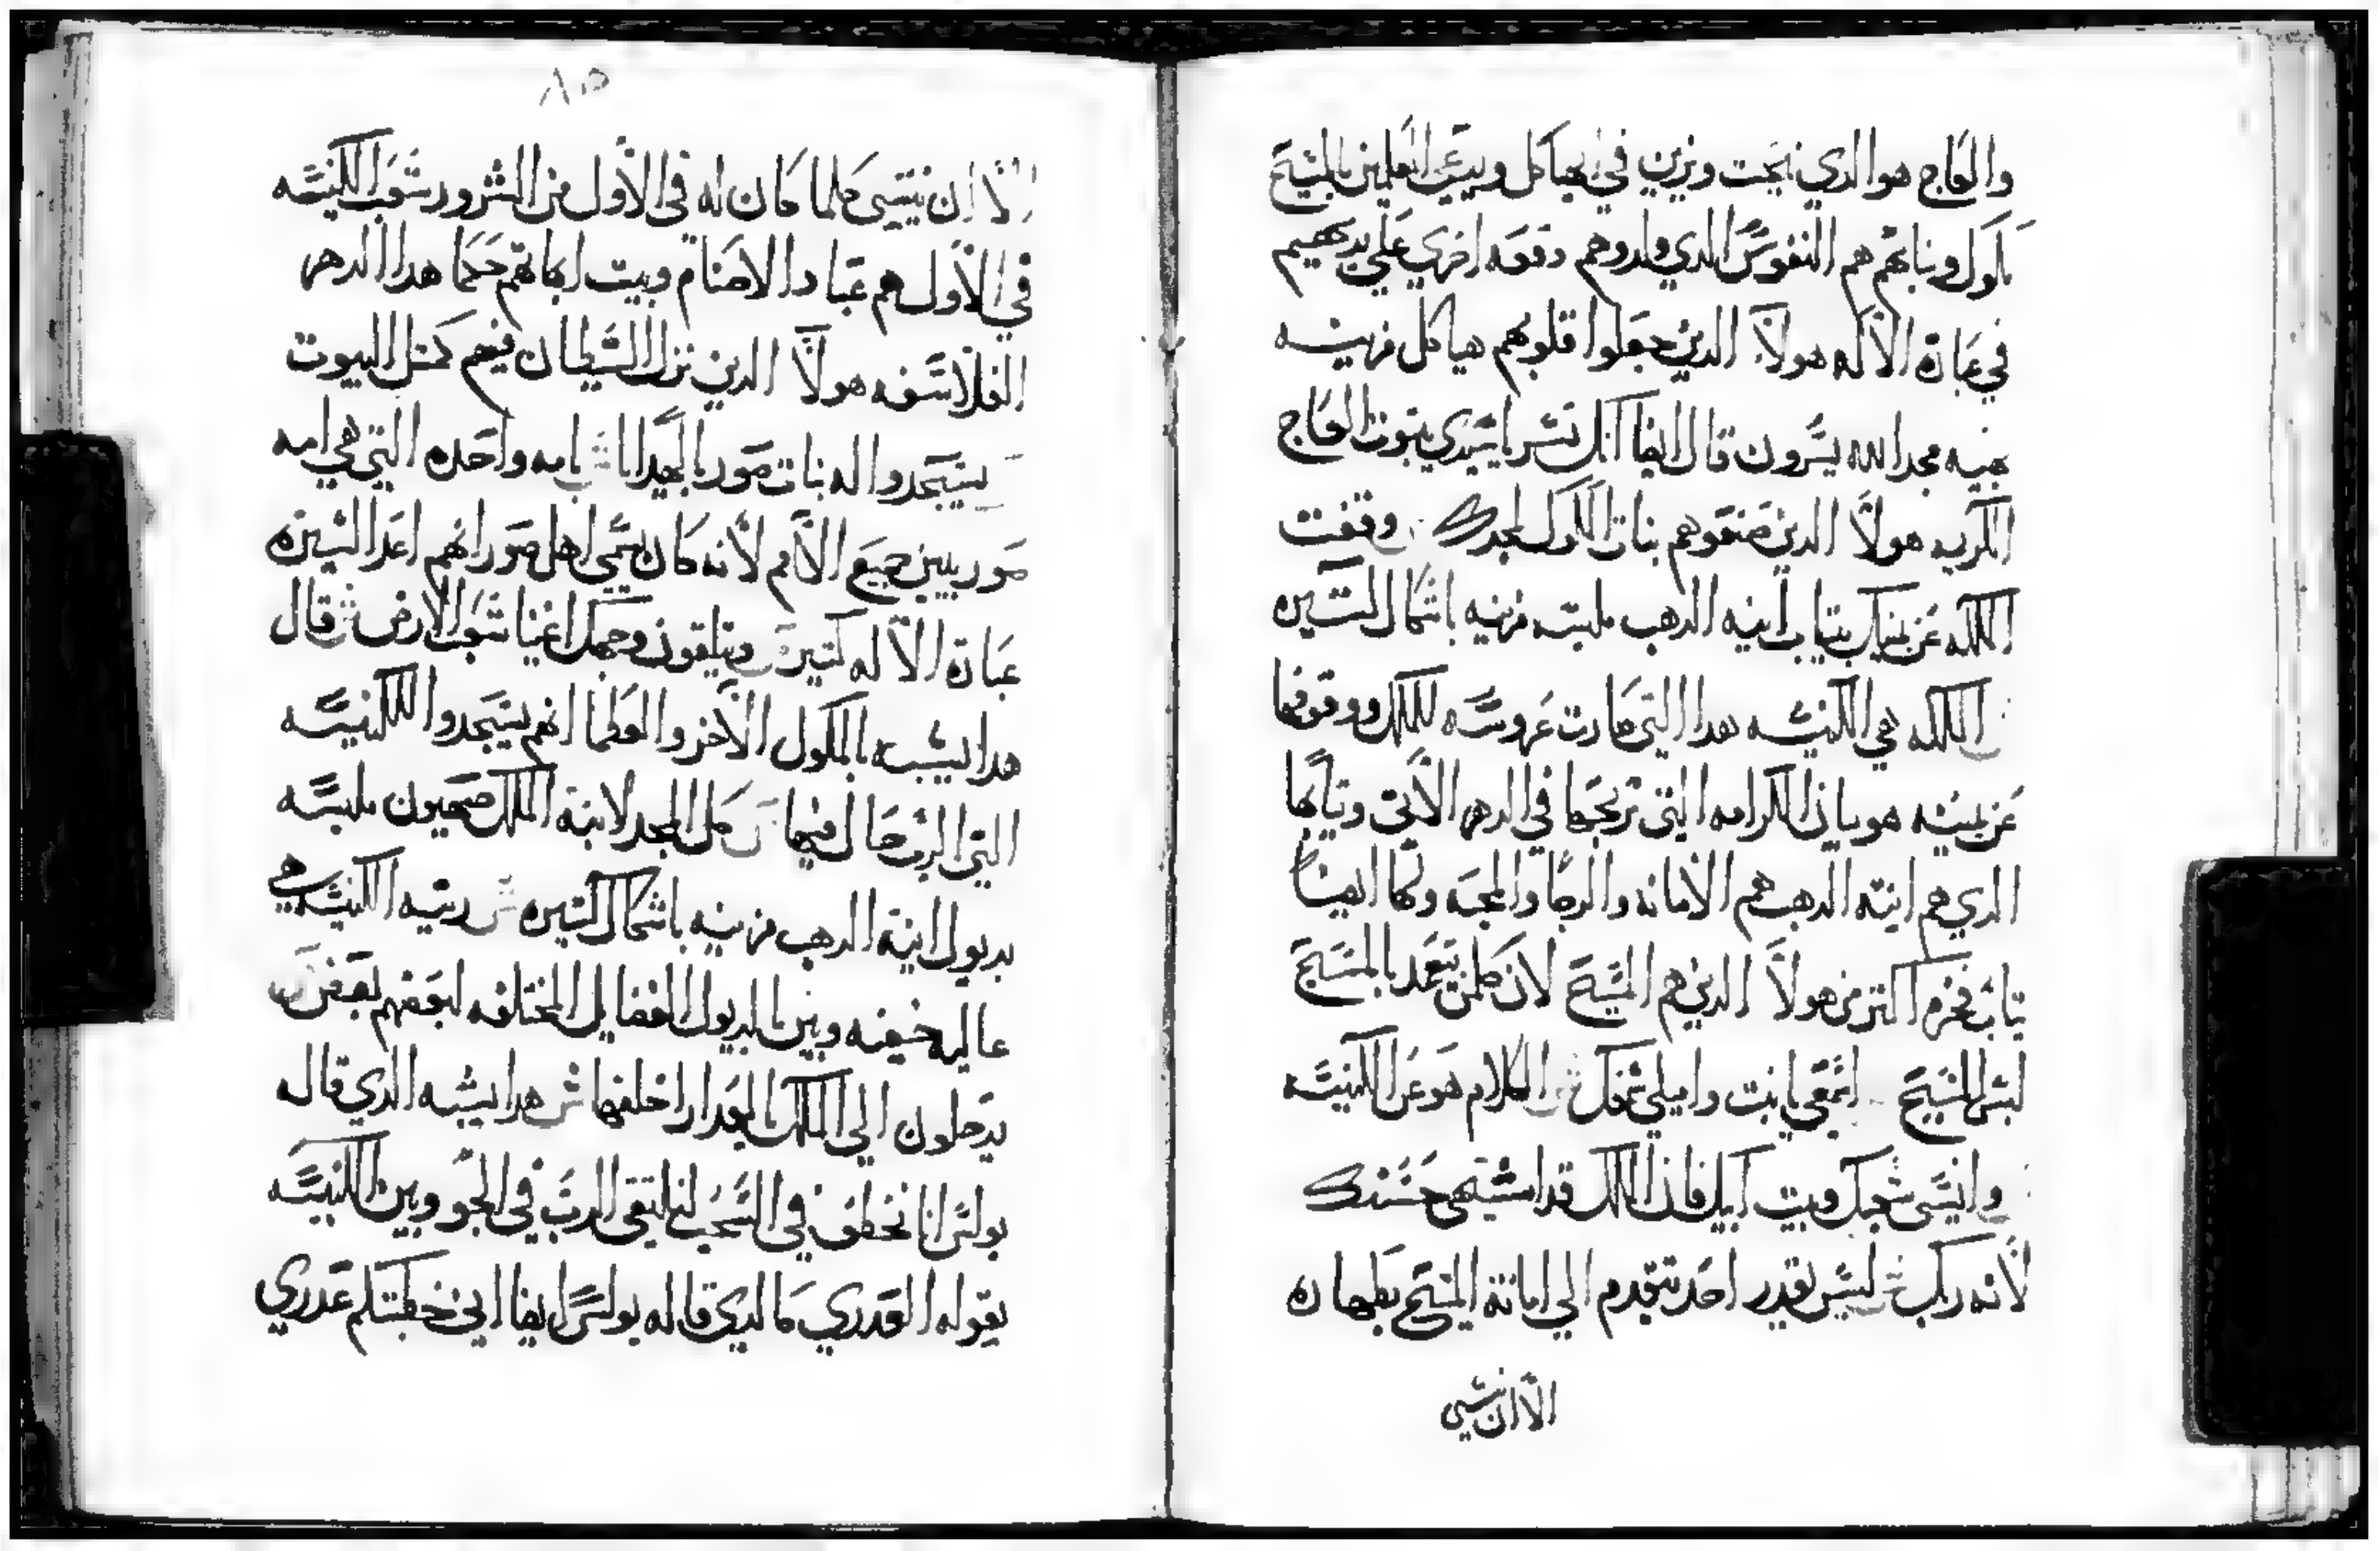 والعاج هو الدي نجت ونزين في الهياكل ويبتي المعلمين بالمسيح
ملوك وبناتهم هم النفوس الدي ولدوهم دفعه اخري علي يديهم
في عبادة الاله هولآ الدين جعلوا قلوبهم هياكل مزينه
بهيه مجدا لله يسرون قال ايضا انك تسر يا سيدي بيوت العاج
الكريه هولآ الدين صنعوهم بنات الملوك لمجدك وقفت
الملكه عن يمينك بتياب ابنيه الدهب ملبسه مزينه باشكال كتيره
الملكه هي الكنيسه هدا التي صارت عروسه للملك ووقوفها
عن يمينه هو بيان الكرامه التي تربحها في الدهر الاتي وتيابها
الدي هم ابنية الدهب هم الامانه والرجا والمحبه وكما ايضا
تياب فخره اكتر من هولآ الدين هم المسيح لان كلمن يتعمد بالمسيح
لبس المسيح اسمعي يا بنت واميلي سمعك الكلام هو عن الكنيسه
وانسي شعبك وبيت ابيك فان الملك قد اشتهي حسنك
لانه ربك ليس يقدر احد يتقدم الي امانة المسيح بطهاره
الا ان ينسي
٨٥
الا ان ينسي كلما كان له في الاول من الشرور شعب الكنيسه
في الاول هم عباد الاصنام وبيت ابهاتهم حكما هدا الدهر
الفلاسفه هولآ الدين نزل الشيطان فيهم كمتل البيوت
يسجدوا له بنات صور بالهدايا بامه واحده التي هي امه
صور يبين جميع الامم لانه كان يسمي اهل صور انهم اعدا لسيره
عبادة الاله كتير ويتلقون وجهك اغنيا شعب الارض قال
هدا يشبه بالملوك الاخر والعظما انهم يسجدوا للكنيسه
التي الرب حال فيها كل المجد لابنة الملك صهيون ملبسه
بديول ابنية الدهب مزينه باشكال كتيره رتبه الكنيسه هي
عاليه خفيه وبين بالديول الفضايل المختلفه لبعضهم بعض
يدخلون الي الملك بالعدارا خلفها هدا يشبه الدي قال
بولس انا نخطف في السحب لنلتقي الرب في الجو وبين الكنيسه
بقوله العدري كما الدي قاله بولس ايضا اني خطبتكم عدري